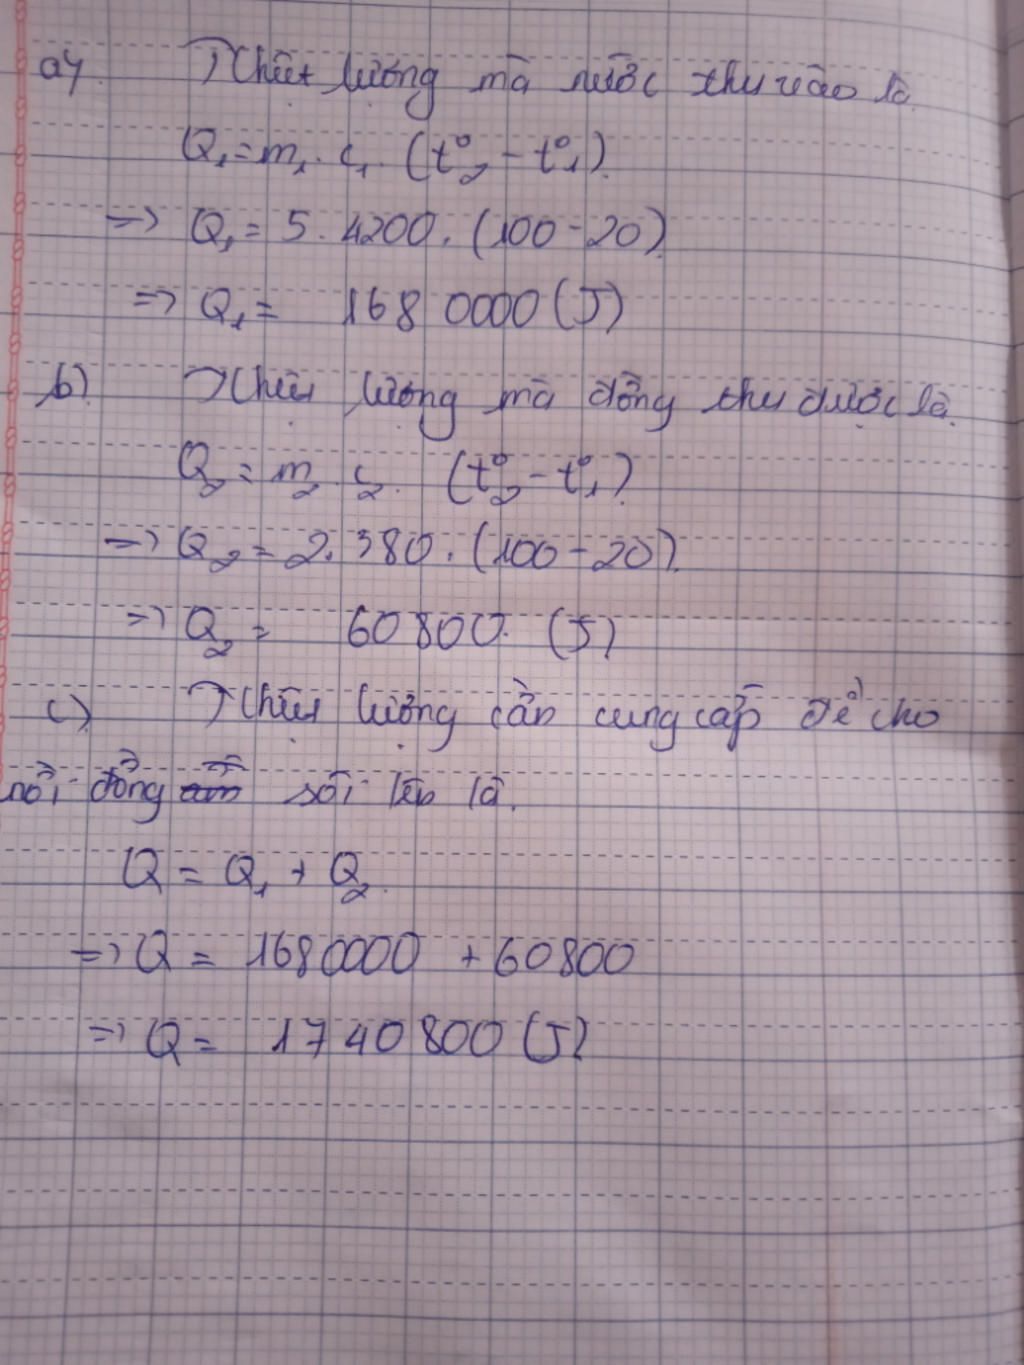 a) Nhiệt lượng mà nước thu vào là
Q₁ = m₁. c₁. (t°₂ - t°₁).
=> Q₁ = 5. 4200. (100-20).
=> Q₁ = 168 0000 (J)
b) Nhiệt lượng mà đồng thu được là
Q₂ = m₂. c₂. (t°₂ - t°₁).
=> Q₂ = 2. 380. (100-20).
=> Q₂ = 60800. (J)
c) Nhiệt lượng cần cung cấp để cho
nồi đồng sôi lên là.
Q = Q₁ + Q₂.
=> Q = 1680000 + 60800
=> Q = 1740800 (J)